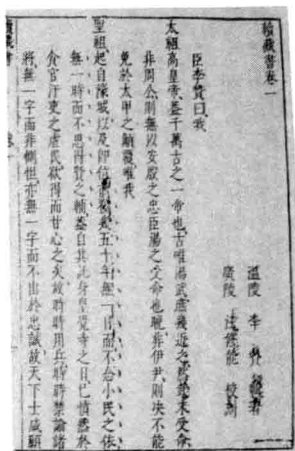 續藏書卷一
溫陵 李 贄 輯著
廣陵 汪修能 校刻
臣李贄曰我
太祖高皇帝蓋千萬古之一帝也古唯湯武庶幾近之然武未受命
非周公則無以安殷之忠臣湯之受命也晚非伊尹則決不能
免於太甲之顛覆唯我
聖祖起自濠城以及即位前後幾五十年無一日而不念小民之依
無一時而不思得賢之輔蓋自其託身皇覺寺之日已憤然於
貪官汙吏之虐民欲得而甘心之矣故時時用兵時時禁諭諸
將無一字而非惻怛亦無一字而不出於忠誠故天下士咸願